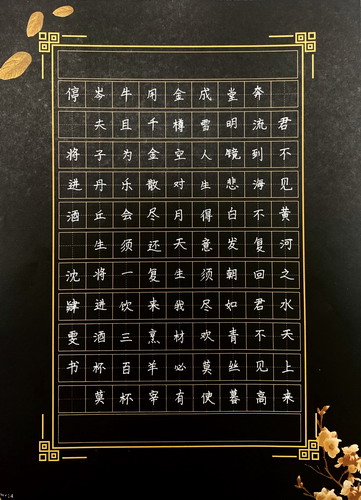 君不见黄河之水天上来
奔流到海不复回君不见高
堂明镜悲白发朝如青丝暮
成雪人生得意须尽欢莫使
金樽空对月天生我材必有
用千金散尽还复来烹羊宰
牛且为乐会须一饮三百杯
岑夫子丹丘生将进酒杯莫
停 将进酒 沈肆雯书